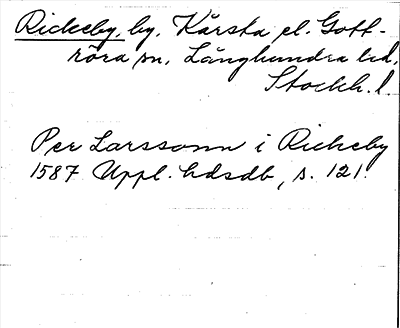 Rickeby, by, Kårsta el. Gott-
röra sn, Långhundra hd,
Stockh. l.
Per Larssonn i Rickeby
1587 Uppl. hdsdb, s. 121.